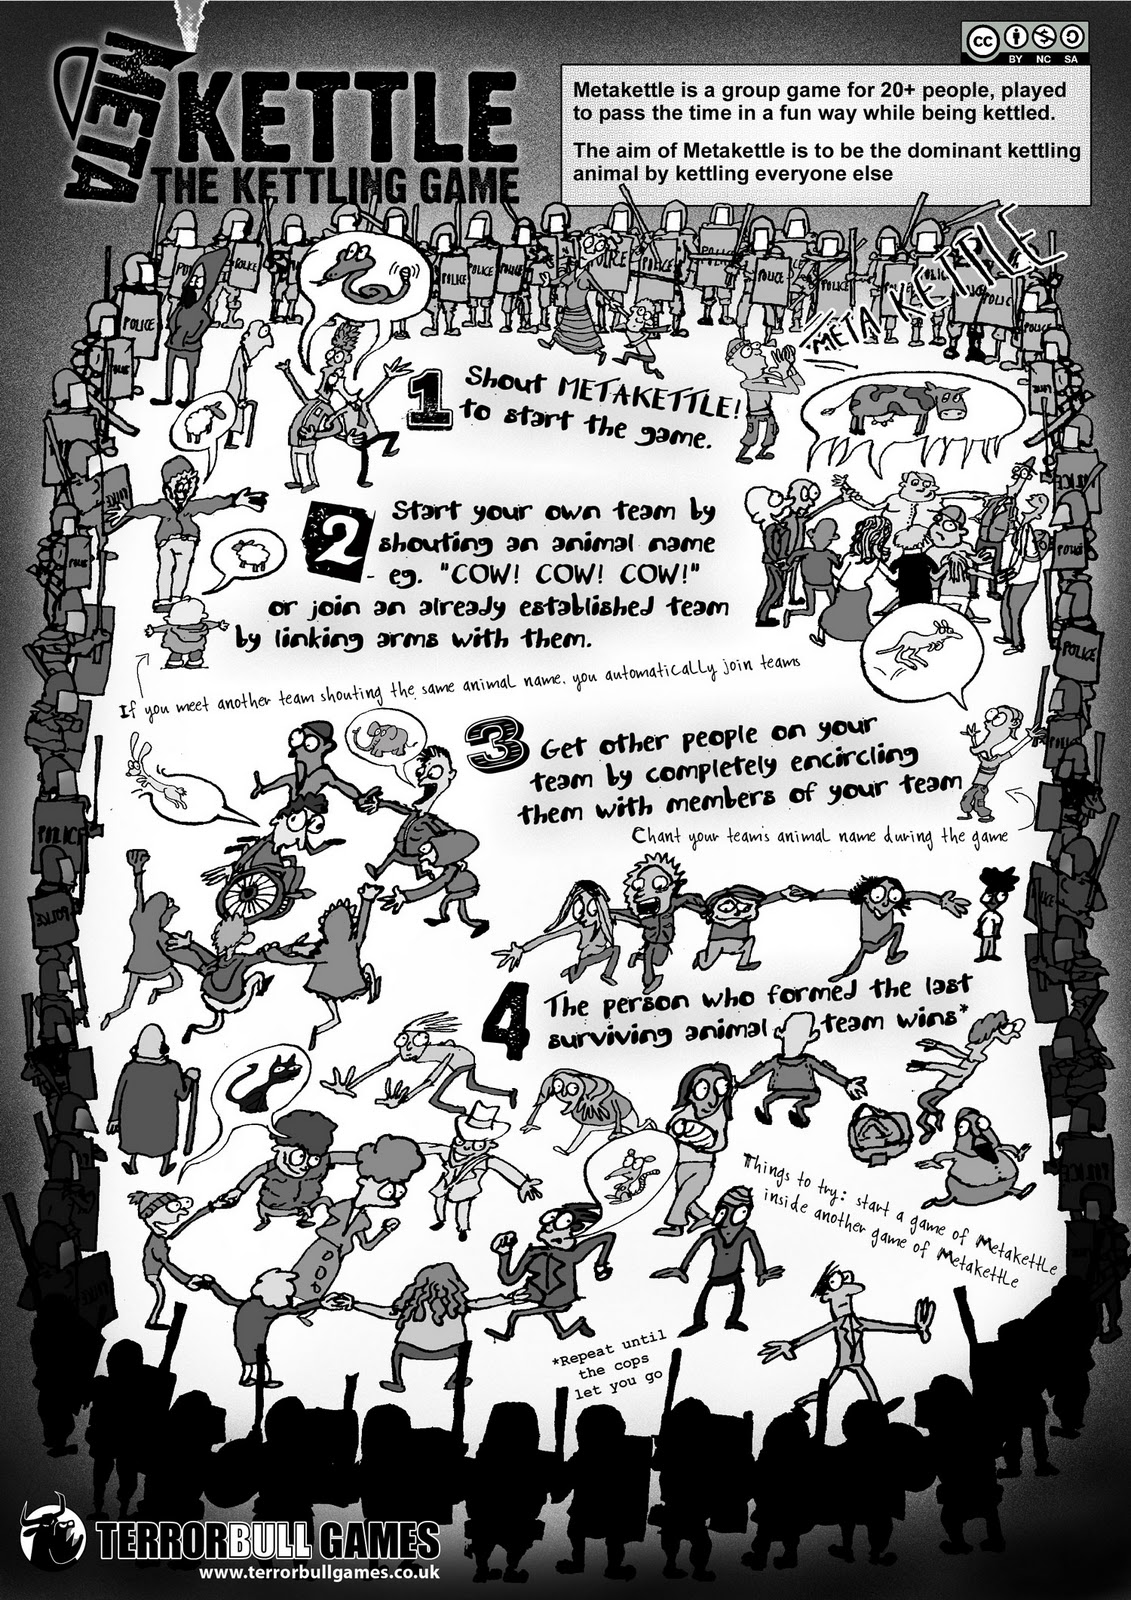 META
KETTLE
THE KETTLING GAME
cc
BY NC SA
Metakettle is a group game for 20+ people, played
to pass the time in a fun way while being kettled.
The aim of Metakettle is to be the dominant kettling
animal by kettling everyone else
POLICE
POLICE
POLICE
POLICE
POLICE
POLICE
POLICE
META KETTLE
1 Shout METAKETTLE!
to start the game.
2 Start your own team by
shouting an animal name
- eg. "COW! COW! COW!"
or join an already established team
by linking arms with them.
If you meet another team shouting the same animal name, you automatically join teams
POLICE
3 Get other people on your
team by completely encircling
them with members of your team
Chant your team's animal name during the game
POLICE
POLICE
4 The person who formed the last
surviving animal team wins*
Things to try: start a game of Metakettle
inside another game of Metakettle
*Repeat until
the cops
let you go
TERRORBULL GAMES
www.terrorbullgames.co.uk